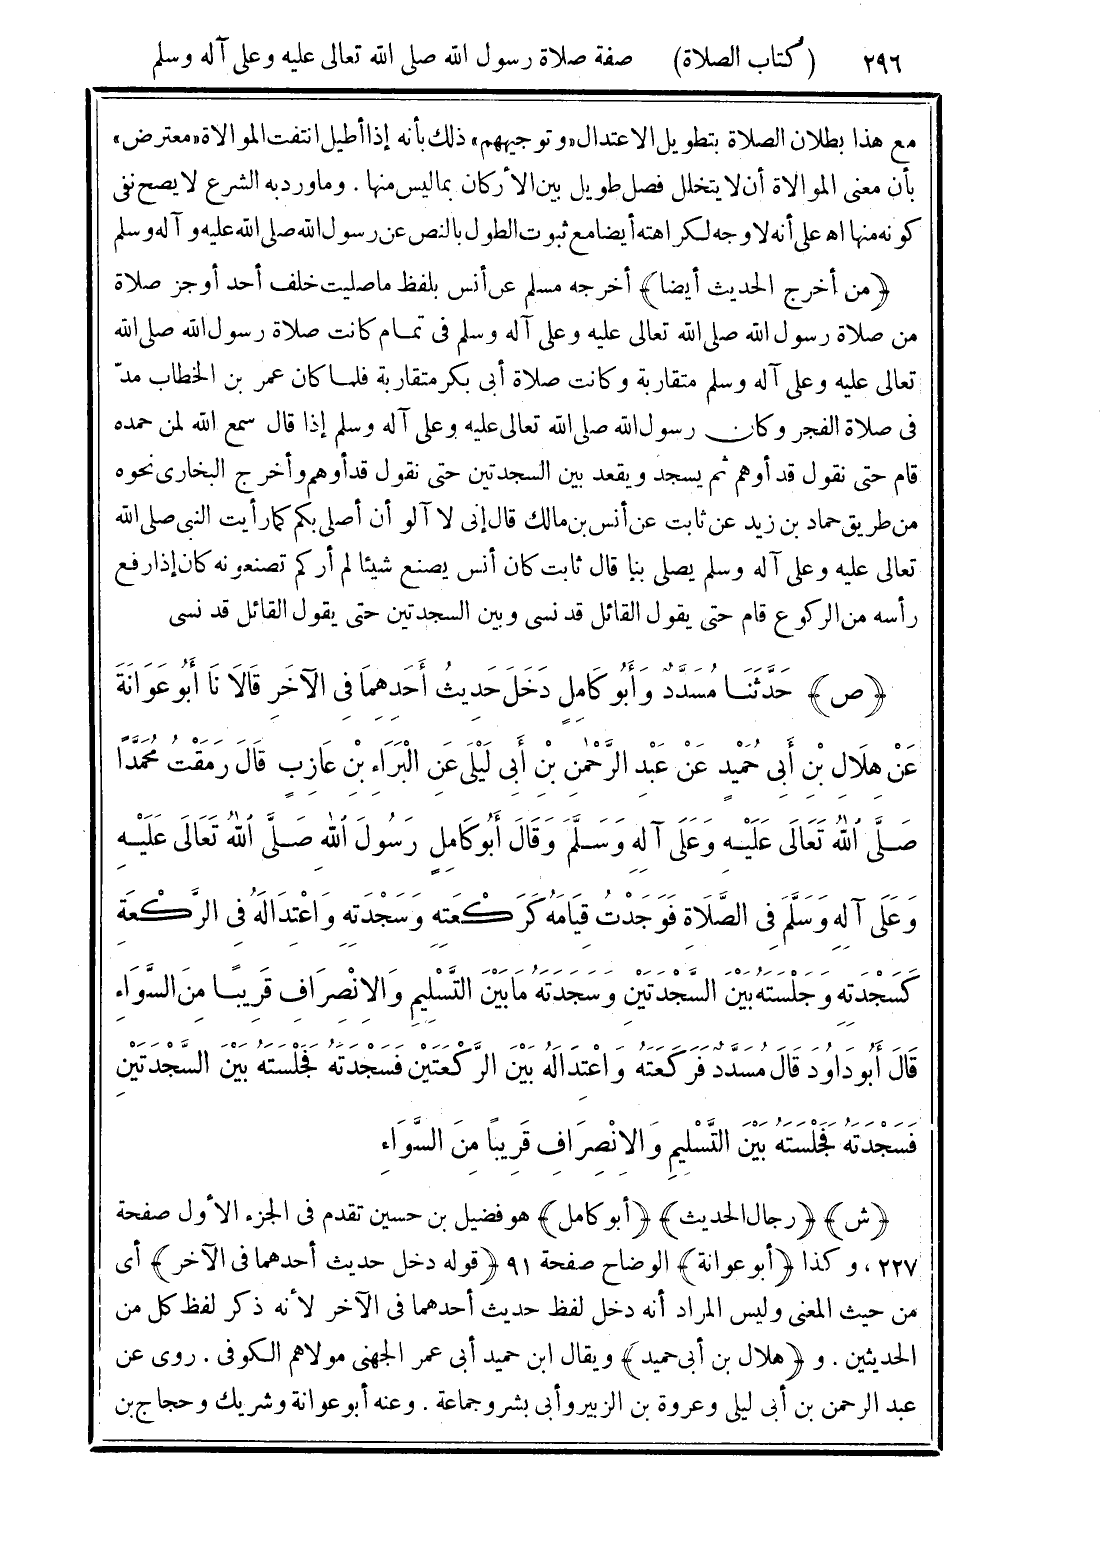 ٢٩٦ (كتاب الصلاة) صفة صلاة رسول الله صلى الله تعالى عليه وعلى آله وسلم
مع هذا بطلان الصلاة بتطويل الاعتدال «وتوجيههم» ذلك بأنه إذا أطيل انتفت الموالاة «معترض»
بأن معنى الموالاة أن لا يتخلل فصل طويل بين الأركان بما ليس منها . وما ورد به الشرع لا يصح نفى
كونه منها اه على أنه لا وجه لكراهته أيضا مع ثبوت الطول بالنص عن رسول الله صلى الله عليه وآله وسلم
﴿من أخرج الحديث أيضا﴾ أخرجه مسلم عن أنس بلفظ ما صليت خلف أحد أوجز صلاة
من صلاة رسول الله صلى الله تعالى عليه وعلى آله وسلم فى تمام كانت صلاة رسول الله صلى الله
تعالى عليه وعلى آله وسلم متقاربة وكانت صلاة أبى بكر متقاربة فلما كان عمر بن الخطاب مدّ
فى صلاة الفجر وكان رسول الله صلى الله تعالى عليه وعلى آله وسلم إذا قال سمع الله لمن حمده
قام حتى نقول قد أوهم ثم يسجد ويقعد بين السجدتين حتى نقول قد أوهم وأخرج البخارى نحوه
من طريق حماد بن زيد عن ثابت عن أنس بن مالك قال إنى لا آلو أن أصلى بكم كما رأيت النبى صلى الله
تعالى عليه وعلى آله وسلم يصلى بنا قال ثابت كان أنس يصنع شيئا لم أركم تصنعونه كان إذا رفع
رأسه من الركوع قام حتى يقول القائل قد نسى وبين السجدتين حتى يقول القائل قد نسى
﴿ص﴾ حَدَّثَنَا مُسَدَّدٌ وَأَبُو كَامِلٍ دَخَلَ حَدِيثُ أَحَدِهِمَا فِى الآخَرِ قَالَا نَا أَبُو عَوَانَةَ
عَنْ هِلَالِ بْنِ أَبِى حُمَيْدٍ عَنْ عَبْدِ الرَّحْمٰنِ بْنِ أَبِى لَيْلَى عَنِ الْبَرَاءِ بْنِ عَازِبٍ قَالَ رَمَقْتُ مُحَمَّدًا
صَلَّى اللهُ تَعَالَى عَلَيْهِ وَعَلَى آلِهِ وَسَلَّمَ وَقَالَ أَبُو كَامِلٍ رَسُولَ اللهِ صَلَّى اللهُ تَعَالَى عَلَيْهِ
وَعَلَى آلِهِ وَسَلَّمَ فِى الصَّلَاةِ فَوَجَدْتُ قِيَامَهُ كَرَكْعَتِهِ وَسَجْدَتِهِ وَاعْتِدَالَهُ فِى الرَّكْعَةِ
كَسَجْدَتِهِ وَجَلْسَتَهُ بَيْنَ السَّجْدَتَيْنِ وَسَجْدَتَهُ مَا بَيْنَ التَّسْلِيمِ وَالِانْصِرَافِ قَرِيبًا مِنَ السَّوَاءِ
قَالَ أَبُو دَاوُدَ قَالَ مُسَدَّدٌ فَرَكْعَتَهُ وَاعْتِدَالَهُ بَيْنَ الرَّكْعَتَيْنِ فَسَجْدَتَهُ فَجَلْسَتَهُ بَيْنَ السَّجْدَتَيْنِ
فَسَجْدَتَهُ فَجَلْسَتَهُ بَيْنَ التَّسْلِيمِ وَالِانْصِرَافِ قَرِيبًا مِنَ السَّوَاءِ
﴿ش﴾ ﴿رجال الحديث﴾ ﴿أبو كامل﴾ هو فضيل بن حسين تقدم فى الجزء الأول صفحة
٢٢٧ ، وكذا ﴿أبو عوانة﴾ الوضاح صفحة ٩١ ﴿قوله دخل حديث أحدهما فى الآخر﴾ أى
من حيث المعنى وليس المراد أنه دخل لفظ حديث أحدهما فى الآخر لأنه ذكر لفظ كل من
الحديثين . و ﴿هلال بن أبى حميد﴾ ويقال ابن حميد أبى عمر الجهنى مولاهم الكوفى . روى عن
عبد الرحمن بن أبى ليلى وعروة بن الزبير وأبى بشر وجماعة . وعنه أبو عوانة وشريك وحجاج بن